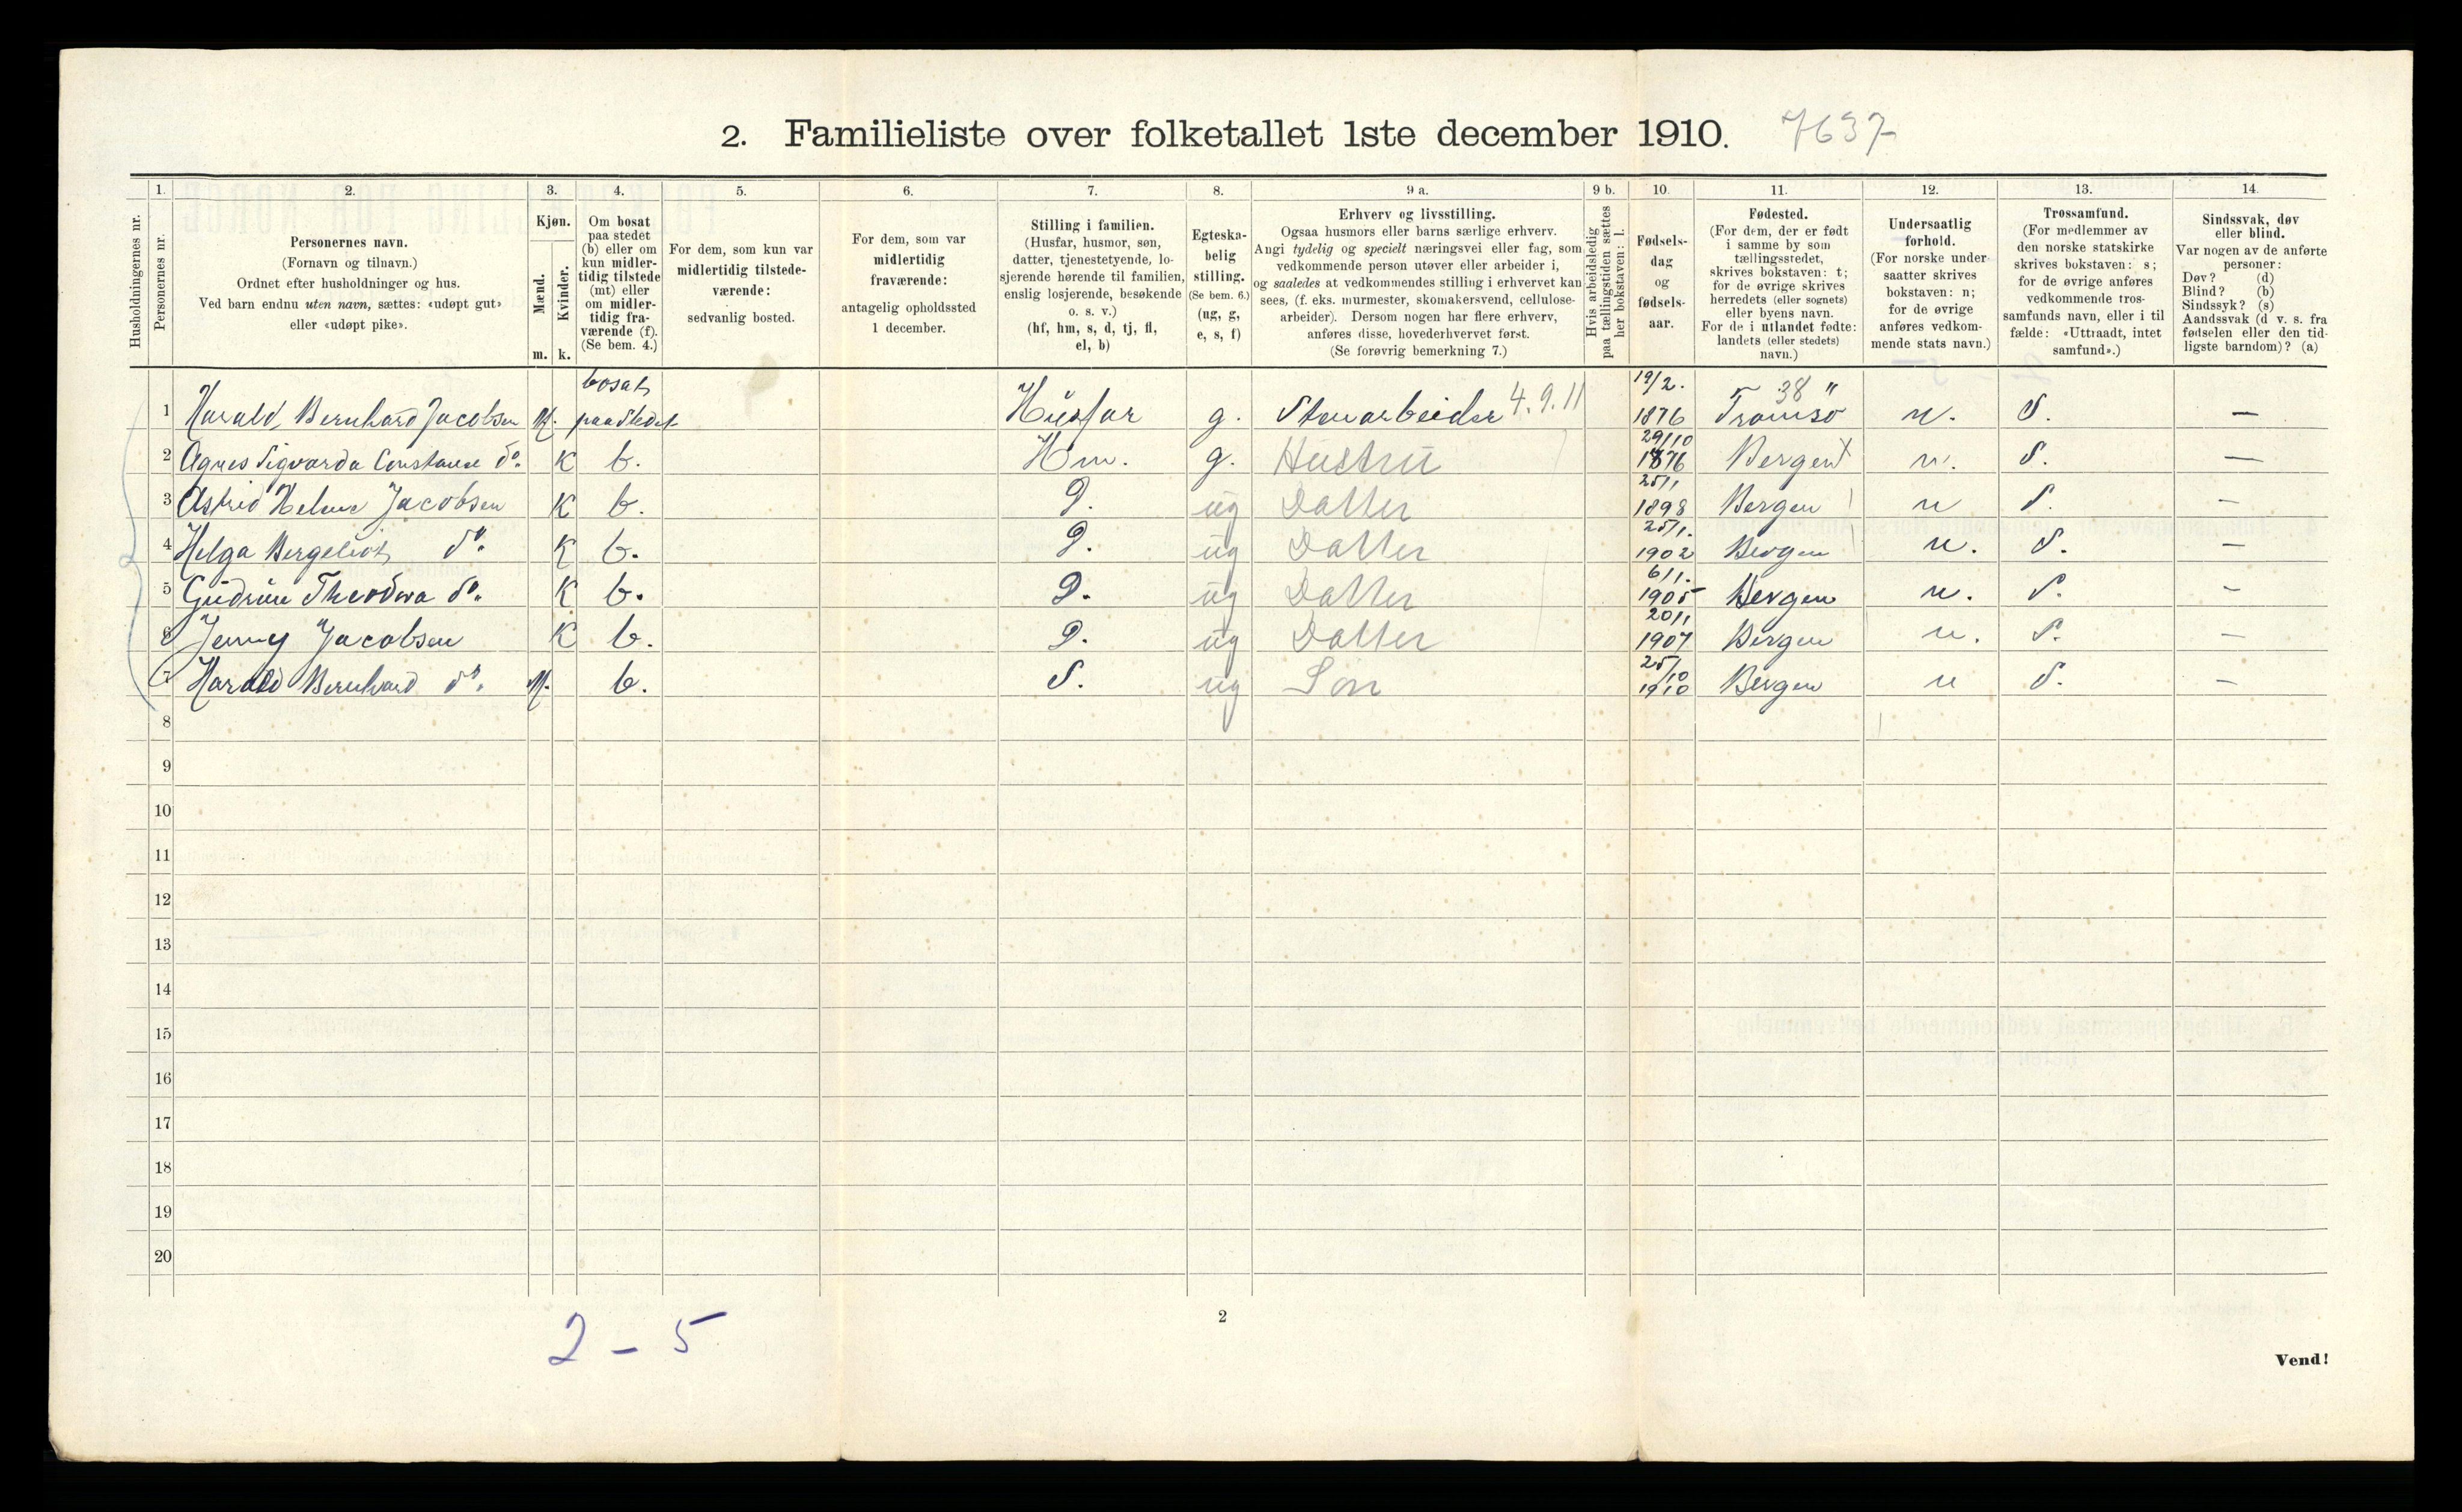 2. Familieliste over folketallet 1ste december 1910. 7637
1. 2. 3. 4. 5. 6. 7. 8. 9 a. 9 b. 10. 11. 12. 13. 14.
Husholdningernes nr.
Personernes nr.
Personernes navn.
(Fornavn og tilnavn.)
Ordnet efter husholdninger og hus.
Ved barn endnu uten navn, sættes: «udøpt gut»
eller «udøpt pike».
Kjøn.
Mænd.
Kvinder.
m. k.
Om bosat
paa stedet
(b) eller om
kun midler-
tidig tilstede
(mt) eller
om midler-
tidig fra-
værende (f).
(Se bem. 4.)
For dem, som kun var
midlertidig tilstede-
værende:
sedvanlig bosted.
For dem, som var
midlertidig
fraværende:
antagelig opholdssted
1 december.
Stilling i familien.
(Husfar, husmor, søn,
datter, tjenestetyende, lo-
sjerende hørende til familien,
enslig losjerende, besøkende
o. s. v.)
(hf, hm, s, d, tj, fl,
el, b)
Egteska-
belig
stilling.
(Se bem. 6.)
(ug, g,
e, s, f)
Erhverv og livsstilling.
Ogsaa husmors eller barns særlige erhverv.
Angi tydelig og specielt næringsvei eller fag, som
vedkommende person utøver eller arbeider i,
og saaledes at vedkommendes stilling i erhvervet kan
sees, (f. eks. murmester, skomakersvend, cellulose-
arbeider). Dersom nogen har flere erhverv,
anføres disse, hovederhvervet først.
(Se forøvrig bemerkning 7.)
Hvis arbeidsledig
paa tællingstiden sættes
her bokstaven: l.
Fødsels-
dag
og
fødsels-
aar.
Fødested.
(For dem, der er født
i samme by som
tællingsstedet,
skrives bokstaven: t;
for de øvrige skrives
herredets (eller sognets)
eller byens navn.
For de i utlandet fødte:
landets (eller stedets)
navn.)
Undersaatlig
forhold.
(For norske under
saatter skrives
bokstaven: n;
for de øvrige
anføres vedkom-
mende stats navn.)
Trossamfund.
(For medlemmer av
den norske statskirke
skrives bokstaven: s;
for de øvrige anføres
vedkommende tros-
samfunds navn, eller i til
fælde: «Uttraadt, intet
samfund».)
Sindssvak, døv
eller blind.
Var nogen av de anførte
personer:
Døv? (d)
Blind? (b)
Sindssyk? (s)
Aandssvak (d v. s. fra
fødselen eller den tid-
ligste barndom)? (a)
1 Harald Bernhard Jacobsen M. bosat paa stedet Husfar g. Stenarbeider 4.9.11 19/2. 1876 Tromsø 38 " n. S. —
2 Agnes Sigvarda Constanse do. K b. Hm. g. Hustru 29/10 1876 Bergen n. S. —
3 Astrid Helene Jacobsen K b. D. ug Datter 25/1 1898 Bergen n S. —
4 Helga Bergeliot do. K b. D. ug Datter 25/1. 1902 Bergen n. S. —
5 Gudrun Theodora do. K b. D. ug Datter 6/1. 1905 Bergen n. S. —
6 Jenny Jacobsen K b. D. ug Datter 20/1 1907 Bergen n. S. —
7 Harald Bernhard do. M. b. S. ug Søn 25/10 1910 Bergen n S. —
8
9
10
11
12
13
14
15
16
17
18
19
20
2
2 - 5
Vend!